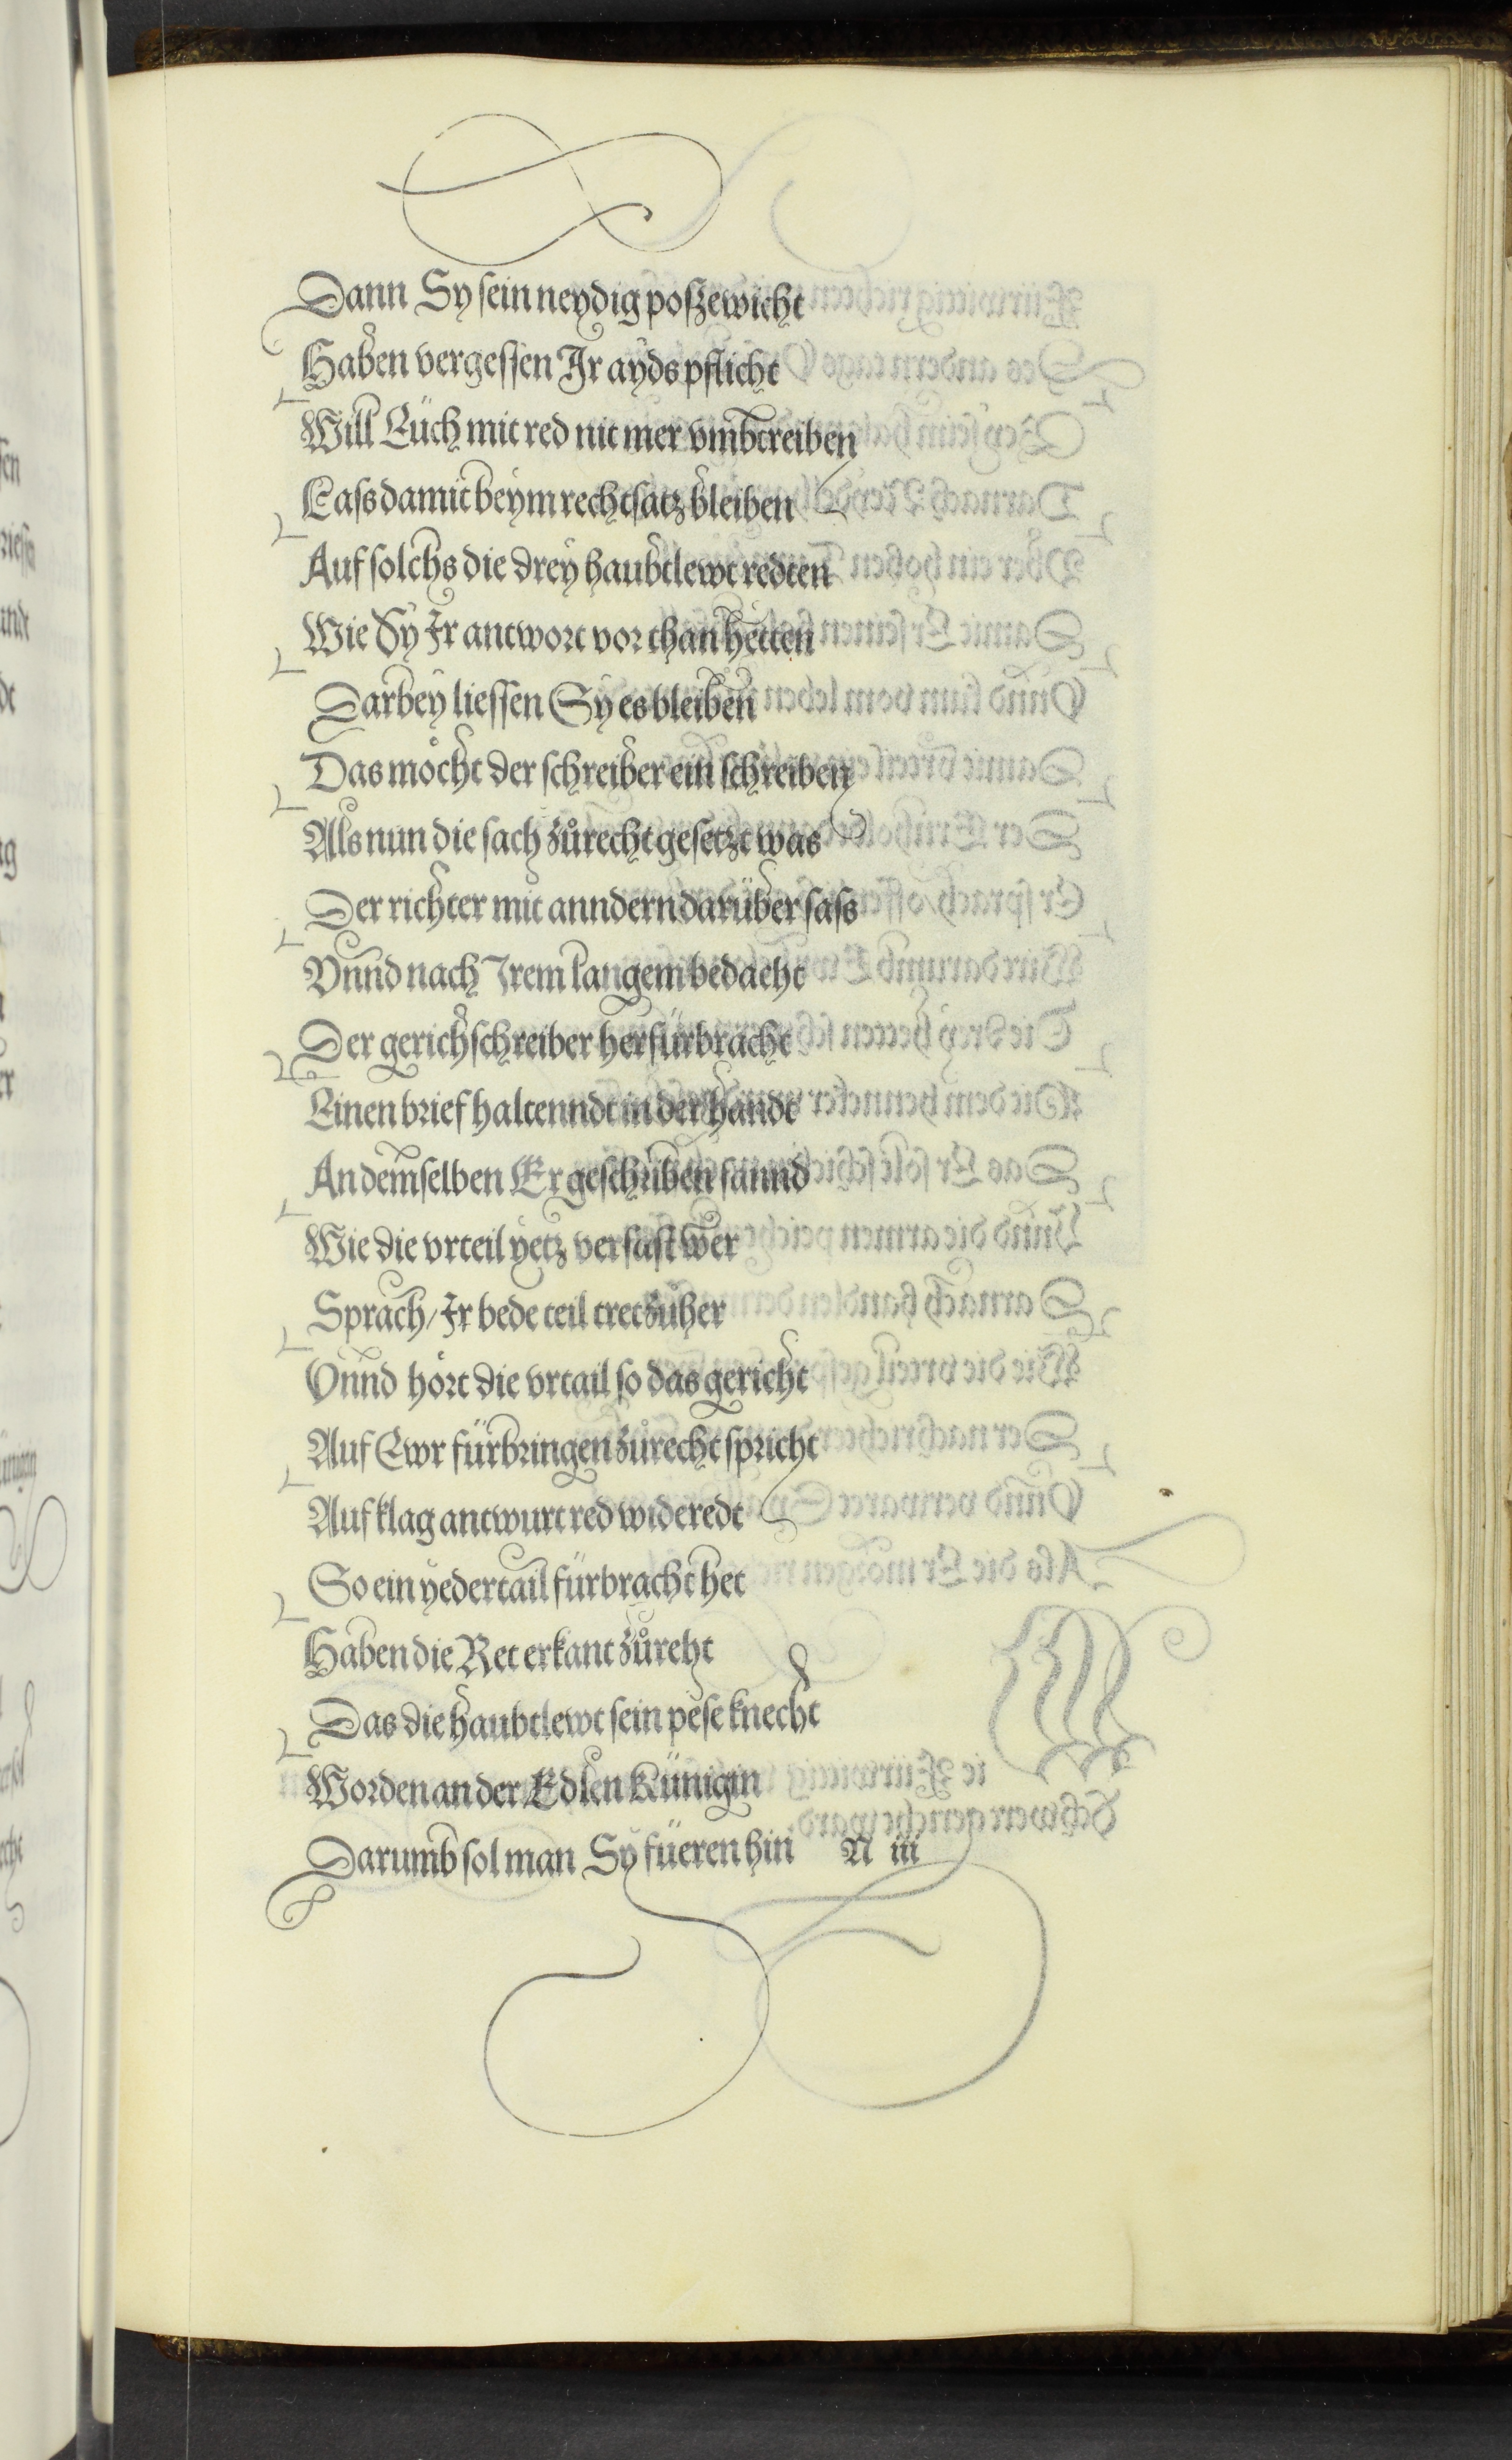 Dann Sy sein neydig poßzewicht
Haben vergessen Jr ayds pflicht
Will Eüch mit red nit mer vmbtreiben
Lass damit beym rechtsatz bleiben
Auf solchs die drey haubtlewt redten
Wie Sy Jr antwort vor than hetten
Darbey liessen Sy es bleiben
Das möcht der schreiber ein schreiben
Als nun die sach zůrecht gesetzt was
Der richter mit anndern darüber sass
Vnnd nach Jrem langem bedacht
Der gerichschreiber herfürbracht
Einen brief haltenndt in der handt
An demselben Er geschriben fannd
Wie die vrteil yetz verfast wer
Sprach / Jr bede teil tret zůher
Vnnd hört die vrtail so das gericht
Auf Ewr fürbringen zůrecht spricht
Auf klag antwurt red wideredt
So ein yeder tail fürbracht het
Haben die Ret erkant zůreht
Das die haubtlewt sein pese knecht
Worden an der Edlen Künigin
Darumb sol man Sy füeren hin N iii